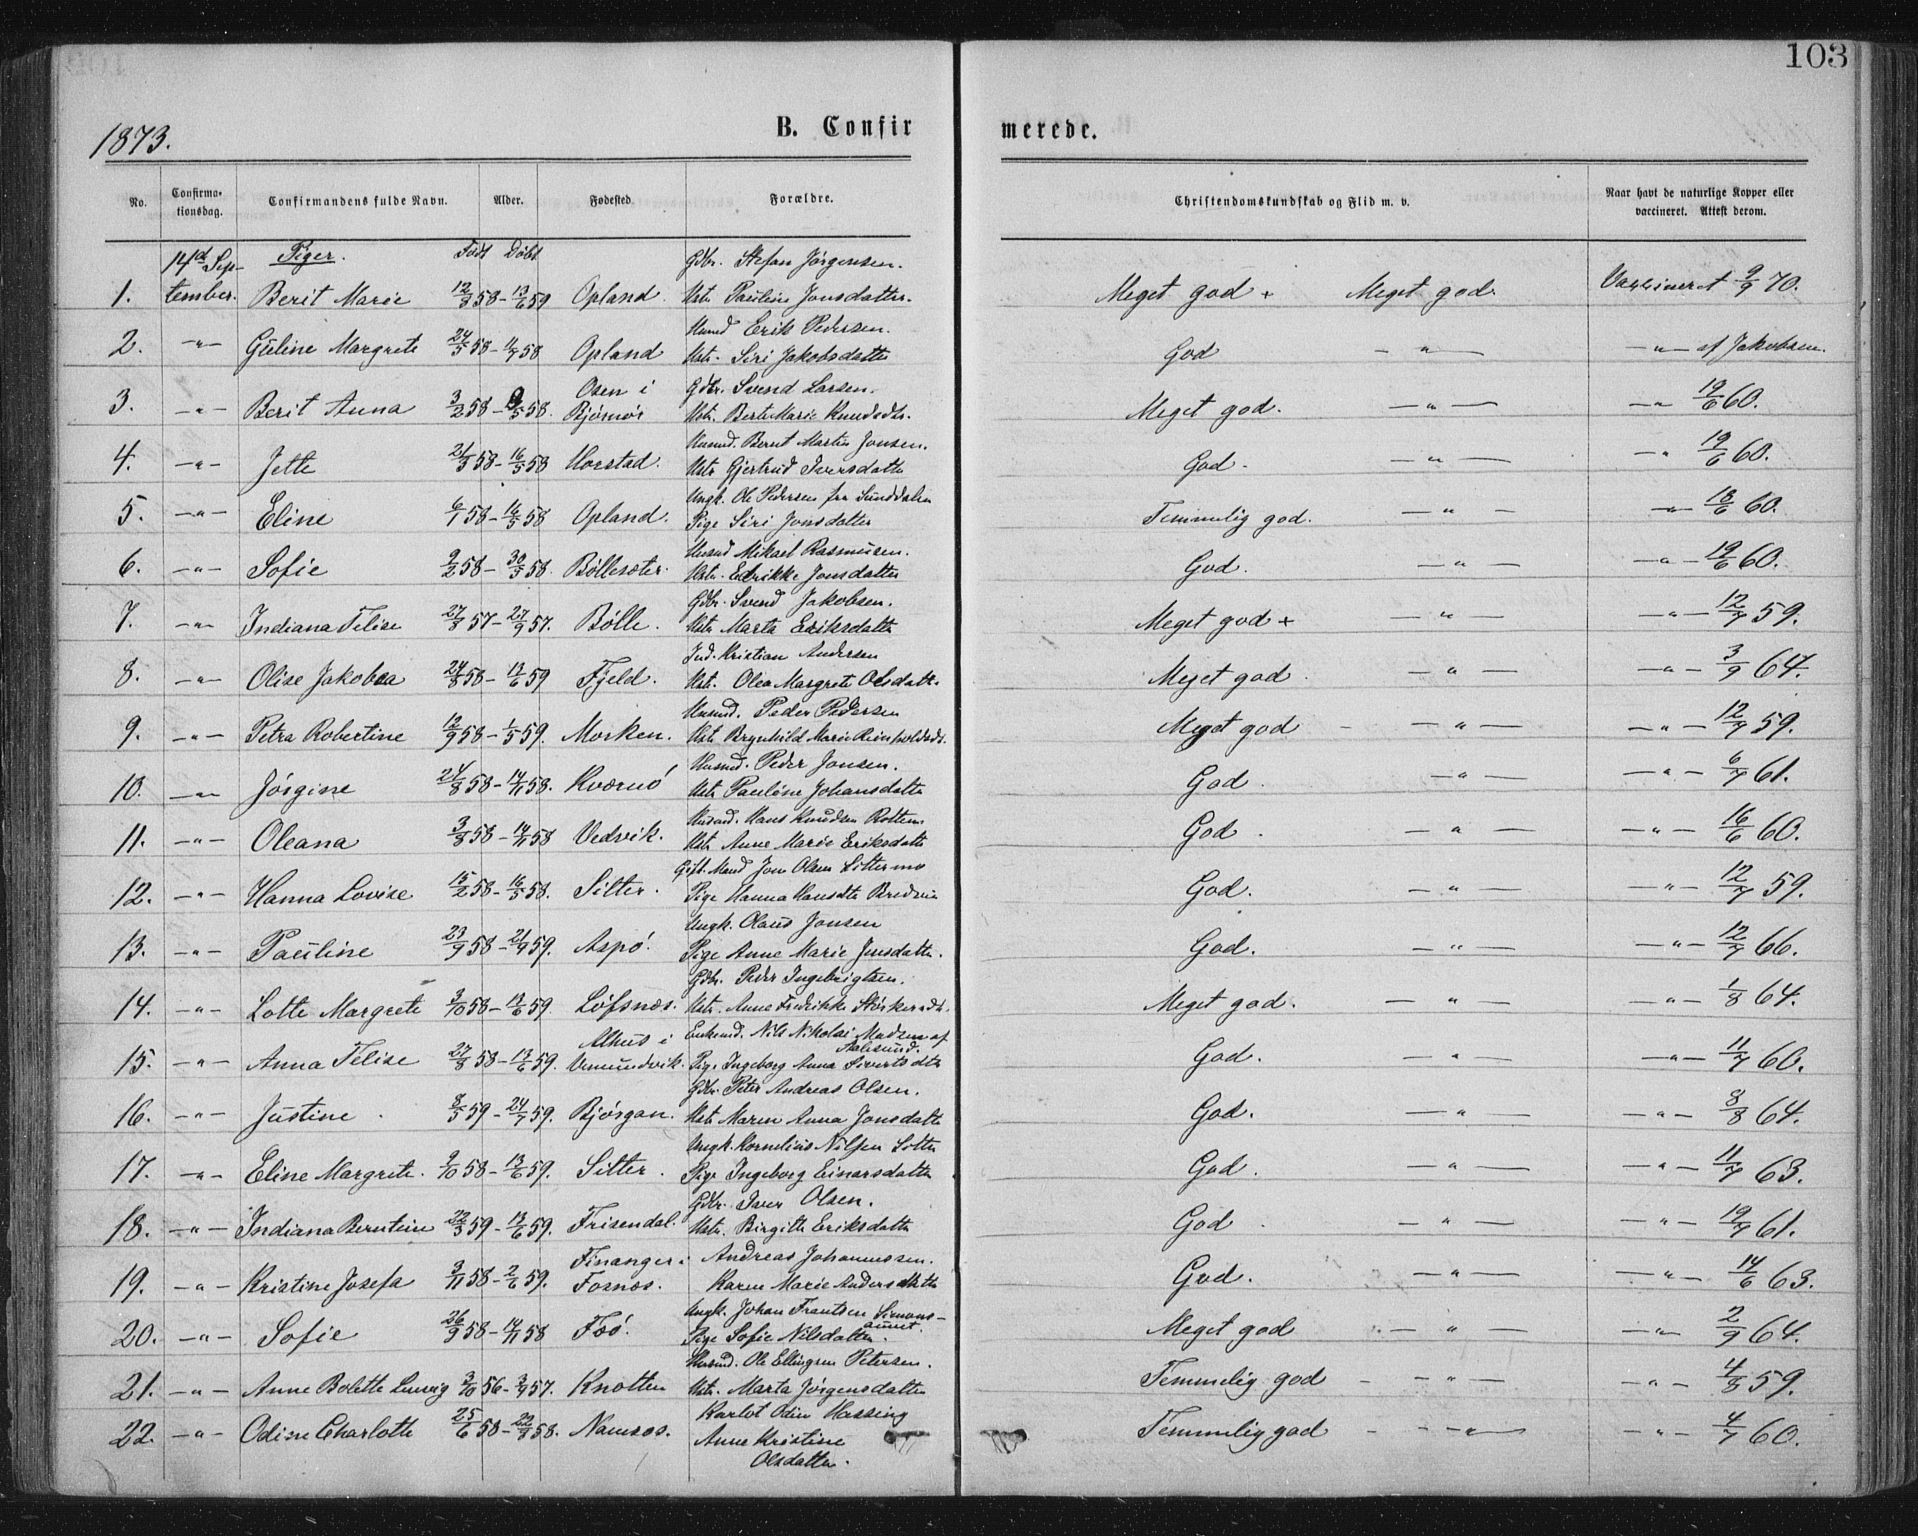 103
1873.
B. Confirmerede.
No. Confirmationsdag. Confirmandens fulde Navn. Alder. Fødested. Forældre. Christendomskundskab og Flid m. v. Naar havt de naturlige Kopper eller vaccineret. Attest derom.
14de September. Piger. Født Døbt
1. Berit Marie 12/8 58 – 13/6 59 Opland. Gdbr. Stefan Jørgensen. Hstr. Pauline Jonsdatter. Meget god + Meget god. Vaccineret 9/9 70.
2. –"– Guline Margrete 24/5 58 – 11/7 58 Opland Husmd Erik Pedersen. Hstr. Siri Jakobsdatter God –"– –"– af Jakobsen.
3. –"– Berit Anna 3/2 58 – 9/5 58. Osen i Bjørnør Gdbr. Svend Larsen. Hstr. Berte Marie Knudsdtr. Meget god. –"– –"– 19/6 60.
4. –"– Jette 21/3 58 – 16/5 58 Horstad. Husmd. Bernt Martin Jonsen. Hstr Gjertrud Iversdatter God. –"– –"– 19/6 60.
5. –"– Eline 6/1 58 – 16/5 58 Opland. Ungk. Ole Pedersen fra Sunddalen Pige Siri Jonsdatter Temmelig god. –"– –"– 18/6 60.
6. –"– Sofie 9/2 58 – 30/5 58. Böllesæter. Husmd Mikael Rasmusen. Hstr. Edrikke Jonsdatter God. –"– –"– 19/6 60.
7. –"– Indiana Felise 27/8 57 – 27/9 57. Bölle. Gdbr. Svend Jakobsen. Hstr Marta Eriksdatter Meget god + –"– –"– 12/7 59.
8. –"– Olise Jakobea 24/8 58 – 13/6 59 Fjeld. Ind. Kristian Andersen Hstr. Olea Margrete Olsdatter Meget god. –"– –"– 3/9 64.
9. –"– Petra Robertine 12/9 58 – 1/5 59. Morken. Husmd. Peder Pedersen Hstr Brynhild Marie Reinholdsdt. Meget god –"– –"– 12/7 59.
10. –"– Jørgine 24/8 58 – 14/11 58. Kværnö Husmd. Peder Jonsen. Hstr Pauline Johansdatter God. –"– –"– 6/7 61.
11. –"– Oleana 3/8 58 – 14/11 58 Vedvik. Husmd. Hans Knudsen Rottem. Hstr Anne Marie Eriksdatter God. –"– –"– 16/6 60.
12. –"– Hanna Lovise 15/2 58 – 16/5 58. Sitter. Gift Mand Jon Olsen Sittermo Pige Hanna Hansdtr God. –"– –"– 12/7 59.
13. –"– Pauline 23/9 58 – 21/4 59. Aspö. Ungk. Olaus Jonsen Pige Anne Marie Jensdatter. God. –"– –"– 12/7 66.
14. –"– Lotte Margrete 3/10 58 – 13/6 59. Löfsnæs. Gdbr. Peder Ingebrigtsen. Hstr. Anne Fredrikke Meget god. –"– –"– 1/8 64.
15. –"– Anna Felise 27/8 58 – 13/6 59. Alhus i Vemundvik. Enkemd. Nils Nikolai Madsen af Aalesund. Pige Ingeborg Anna Sivertsdtr God. –"– –"– 11/7 60.
16. –"– Justine. 8/3 59 – 24/7 59. Bjørgan. Gdbr. Peter Andreas Olsen. Hstr Maren Anna Jonsdatter God. –"– –"– 8/8 64.
17. –"– Eline Margrete. 9/10 58 – 13/6 59. Sitter. Ungk. Kornelius Nilsen Sitter Pige Ingeborg Einarsdatter God. –"– –"– 11/7 63.
18. –"– Indiana Berntine 22/3 59 – 13/6 59. Frisendal. Gdbr. Iver Olsen. Hstr. Birgitte Eriksdatter God. –"– –"– 19/7 61.
19. –"– Kristine Josefa 3/11 58 – 2/6 59. Finanger i Fosnæs. Andreas Johannessen. Karen Marie Andersdatter God. –"– –"– 14/6 63.
20. –"– Sofie 26/9 58 – 14/11 58 Foö. Ungk. Johan Frantsen Simonsaunet. Pige Sofie Nilsdatter. Meget god –"– –"– 2/9 64.
21. –"– Anne Bolette Lunvig 3/10 56 – 3/4 57. Knotten Husmd. Ole Ellingsen Petersen. Hstr. Marta Jørgensdatter Temmelig god –"– –"– 4/8 59.
22. –"– Odine Charlotte 25/6 58 – 22/8 58. Namsos. Karlot Odin Hassing Anne Kristine Olsdatter. Temmelig god –"– –"– 4/7 60.